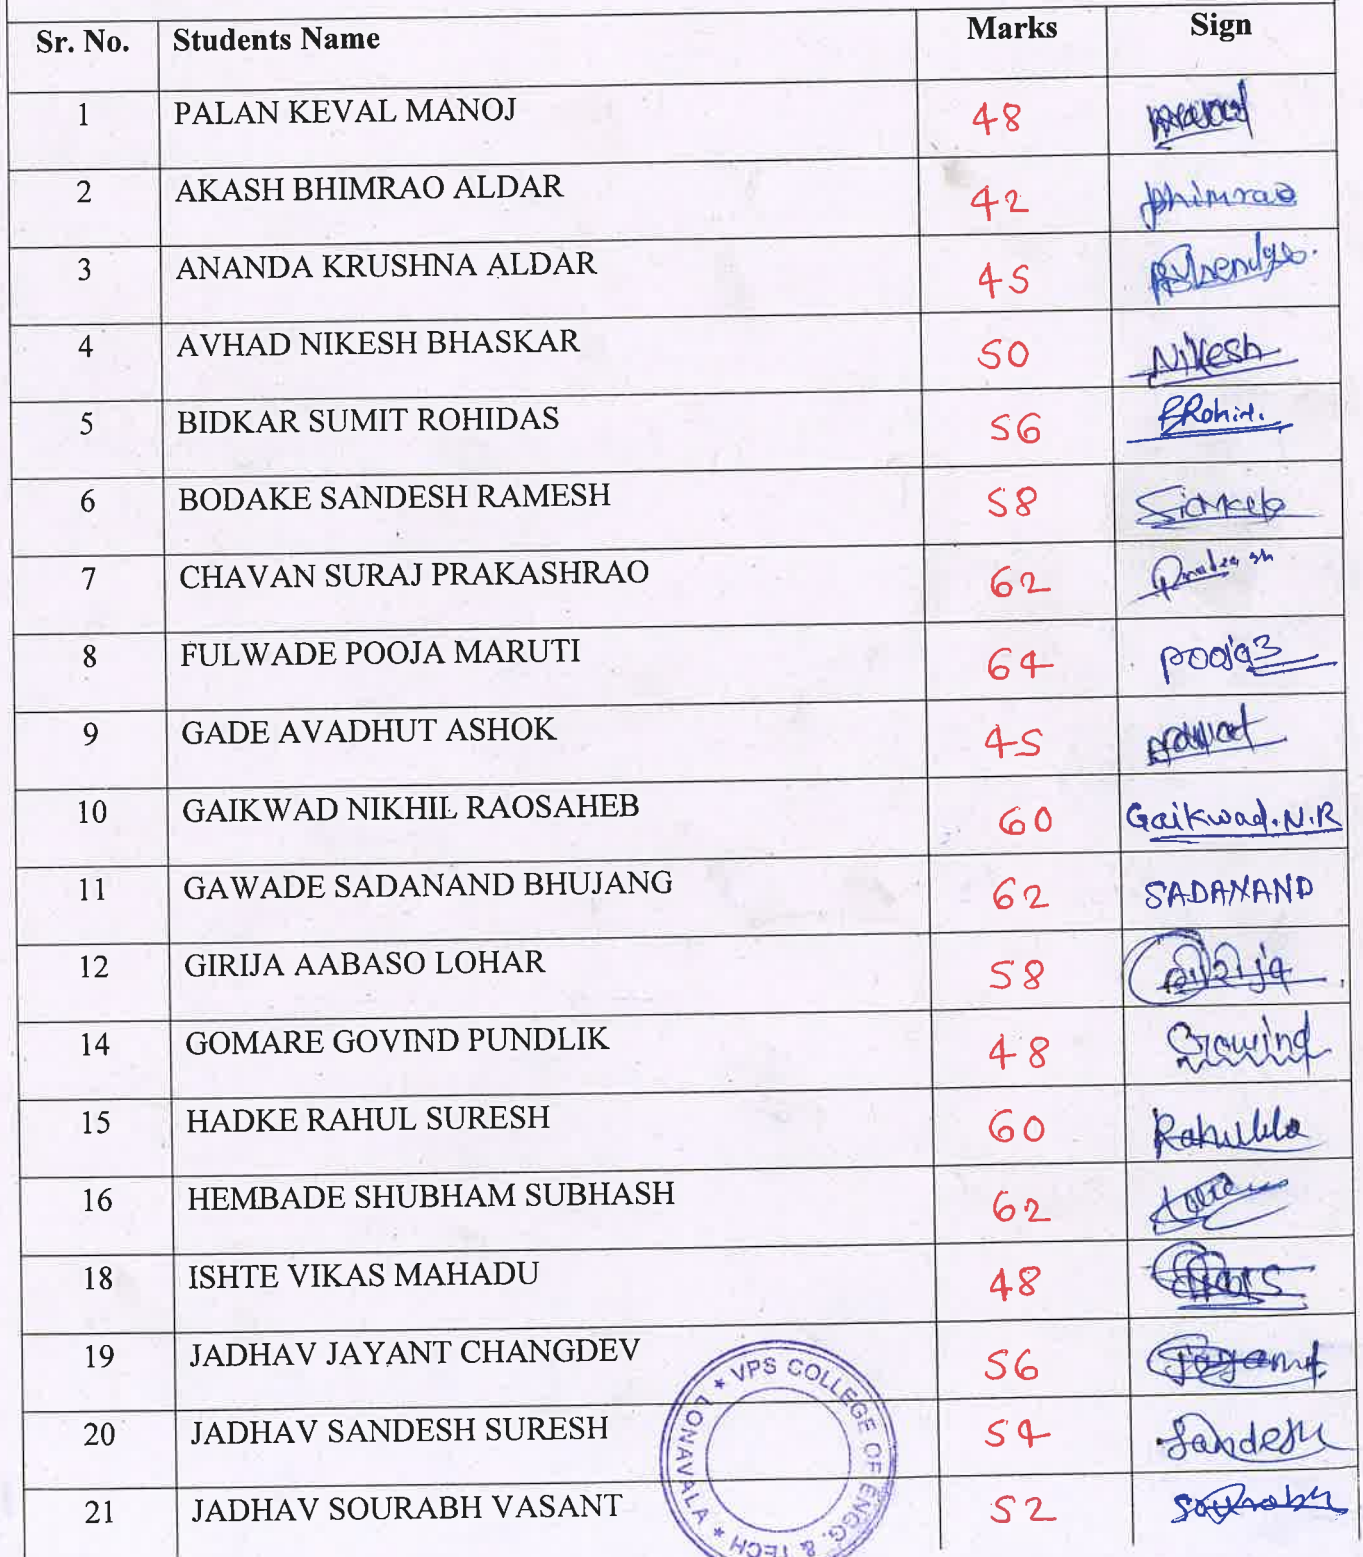 Sr. No. Students Name Marks Sign
1 PALAN KEVAL MANOJ 48
2 AKASH BHIMRAO ALDAR 42 bhimrao
3 ANANDA KRUSHNA ALDAR 45
4 AVHAD NIKESH BHASKAR 50 Nikesh
5 BIDKAR SUMIT ROHIDAS 56
6 BODAKE SANDESH RAMESH 58
7 CHAVAN SURAJ PRAKASHRAO 62
8 FULWADE POOJA MARUTI 64 pooja
9 GADE AVADHUT ASHOK 45
10 GAIKWAD NIKHIL RAOSAHEB 60 Gaikwad.N.R
11 GAWADE SADANAND BHUJANG 62 SADANAND
12 GIRIJA AABASO LOHAR 58
14 GOMARE GOVIND PUNDLIK 48
15 HADKE RAHUL SURESH 60
16 HEMBADE SHUBHAM SUBHASH 62
18 ISHTE VIKAS MAHADU 48
19 JADHAV JAYANT CHANGDEV 56 Jayant
20 JADHAV SANDESH SURESH 54 Sandesh
21 JADHAV SOURABH VASANT 52 Sourabh
★ VPS COLLEGE OF ENGG. & TECH ★ LONAVALA